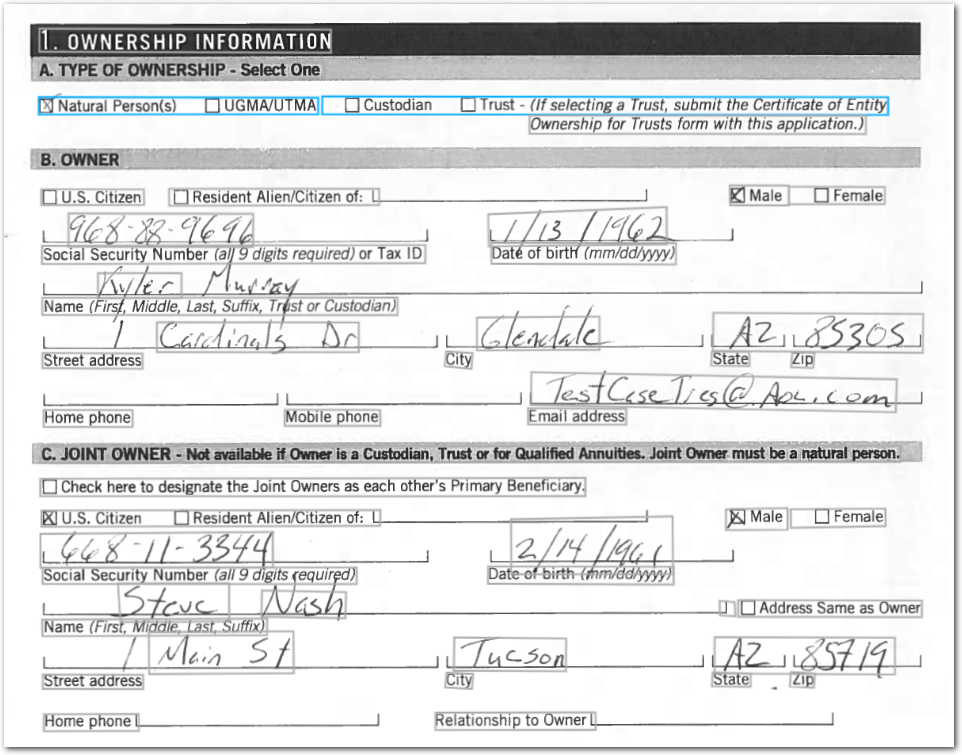 1. OWNERSHIP INFORMATION
A. TYPE OF OWNERSHIP - Select One
☒ Natural Person(s) ☐ UGMA/UTMA ☐ Custodian ☐ Trust - (If selecting a Trust, submit the Certificate of Entity
Ownership for Trusts form with this application.)
B. OWNER
☐ U.S. Citizen ☐ Resident Alien/Citizen of: ☒ Male ☐ Female
968-88-9696 1/13/1962
Social Security Number (all 9 digits required) or Tax ID Date of birth (mm/dd/yyyy)
Kyler Murray
Name (First, Middle, Last, Suffix, Trust or Custodian)
1 Cardinals Dr Glendale AZ 85305
Street address City State Zip
TestCaseTies@Aol.com
Home phone Mobile phone Email address
C. JOINT OWNER - Not available if Owner is a Custodian, Trust or for Qualified Annuities. Joint Owner must be a natural person.
☐ Check here to designate the Joint Owners as each other's Primary Beneficiary.
☒ U.S. Citizen ☐ Resident Alien/Citizen of: ☒ Male ☐ Female
668-11-3344 2/14/1961
Social Security Number (all 9 digits required) Date of birth (mm/dd/yyyy)
Steve Nash ☐ Address Same as Owner
Name (First, Middle, Last, Suffix)
1 Main St Tucson AZ 85719
Street address City State Zip
Home phone Relationship to Owner